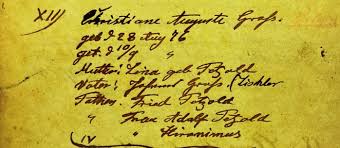 XIII Christiane Auguste Groß.
geb d 28 Aug 76
get. d 10/9 "
Mutter: Lina geb Petzold
Vater: Johann Groß. (Tischler
Pathen. Fried. Petzold
" Frau Adolf Petzold
IV " Hiranimus